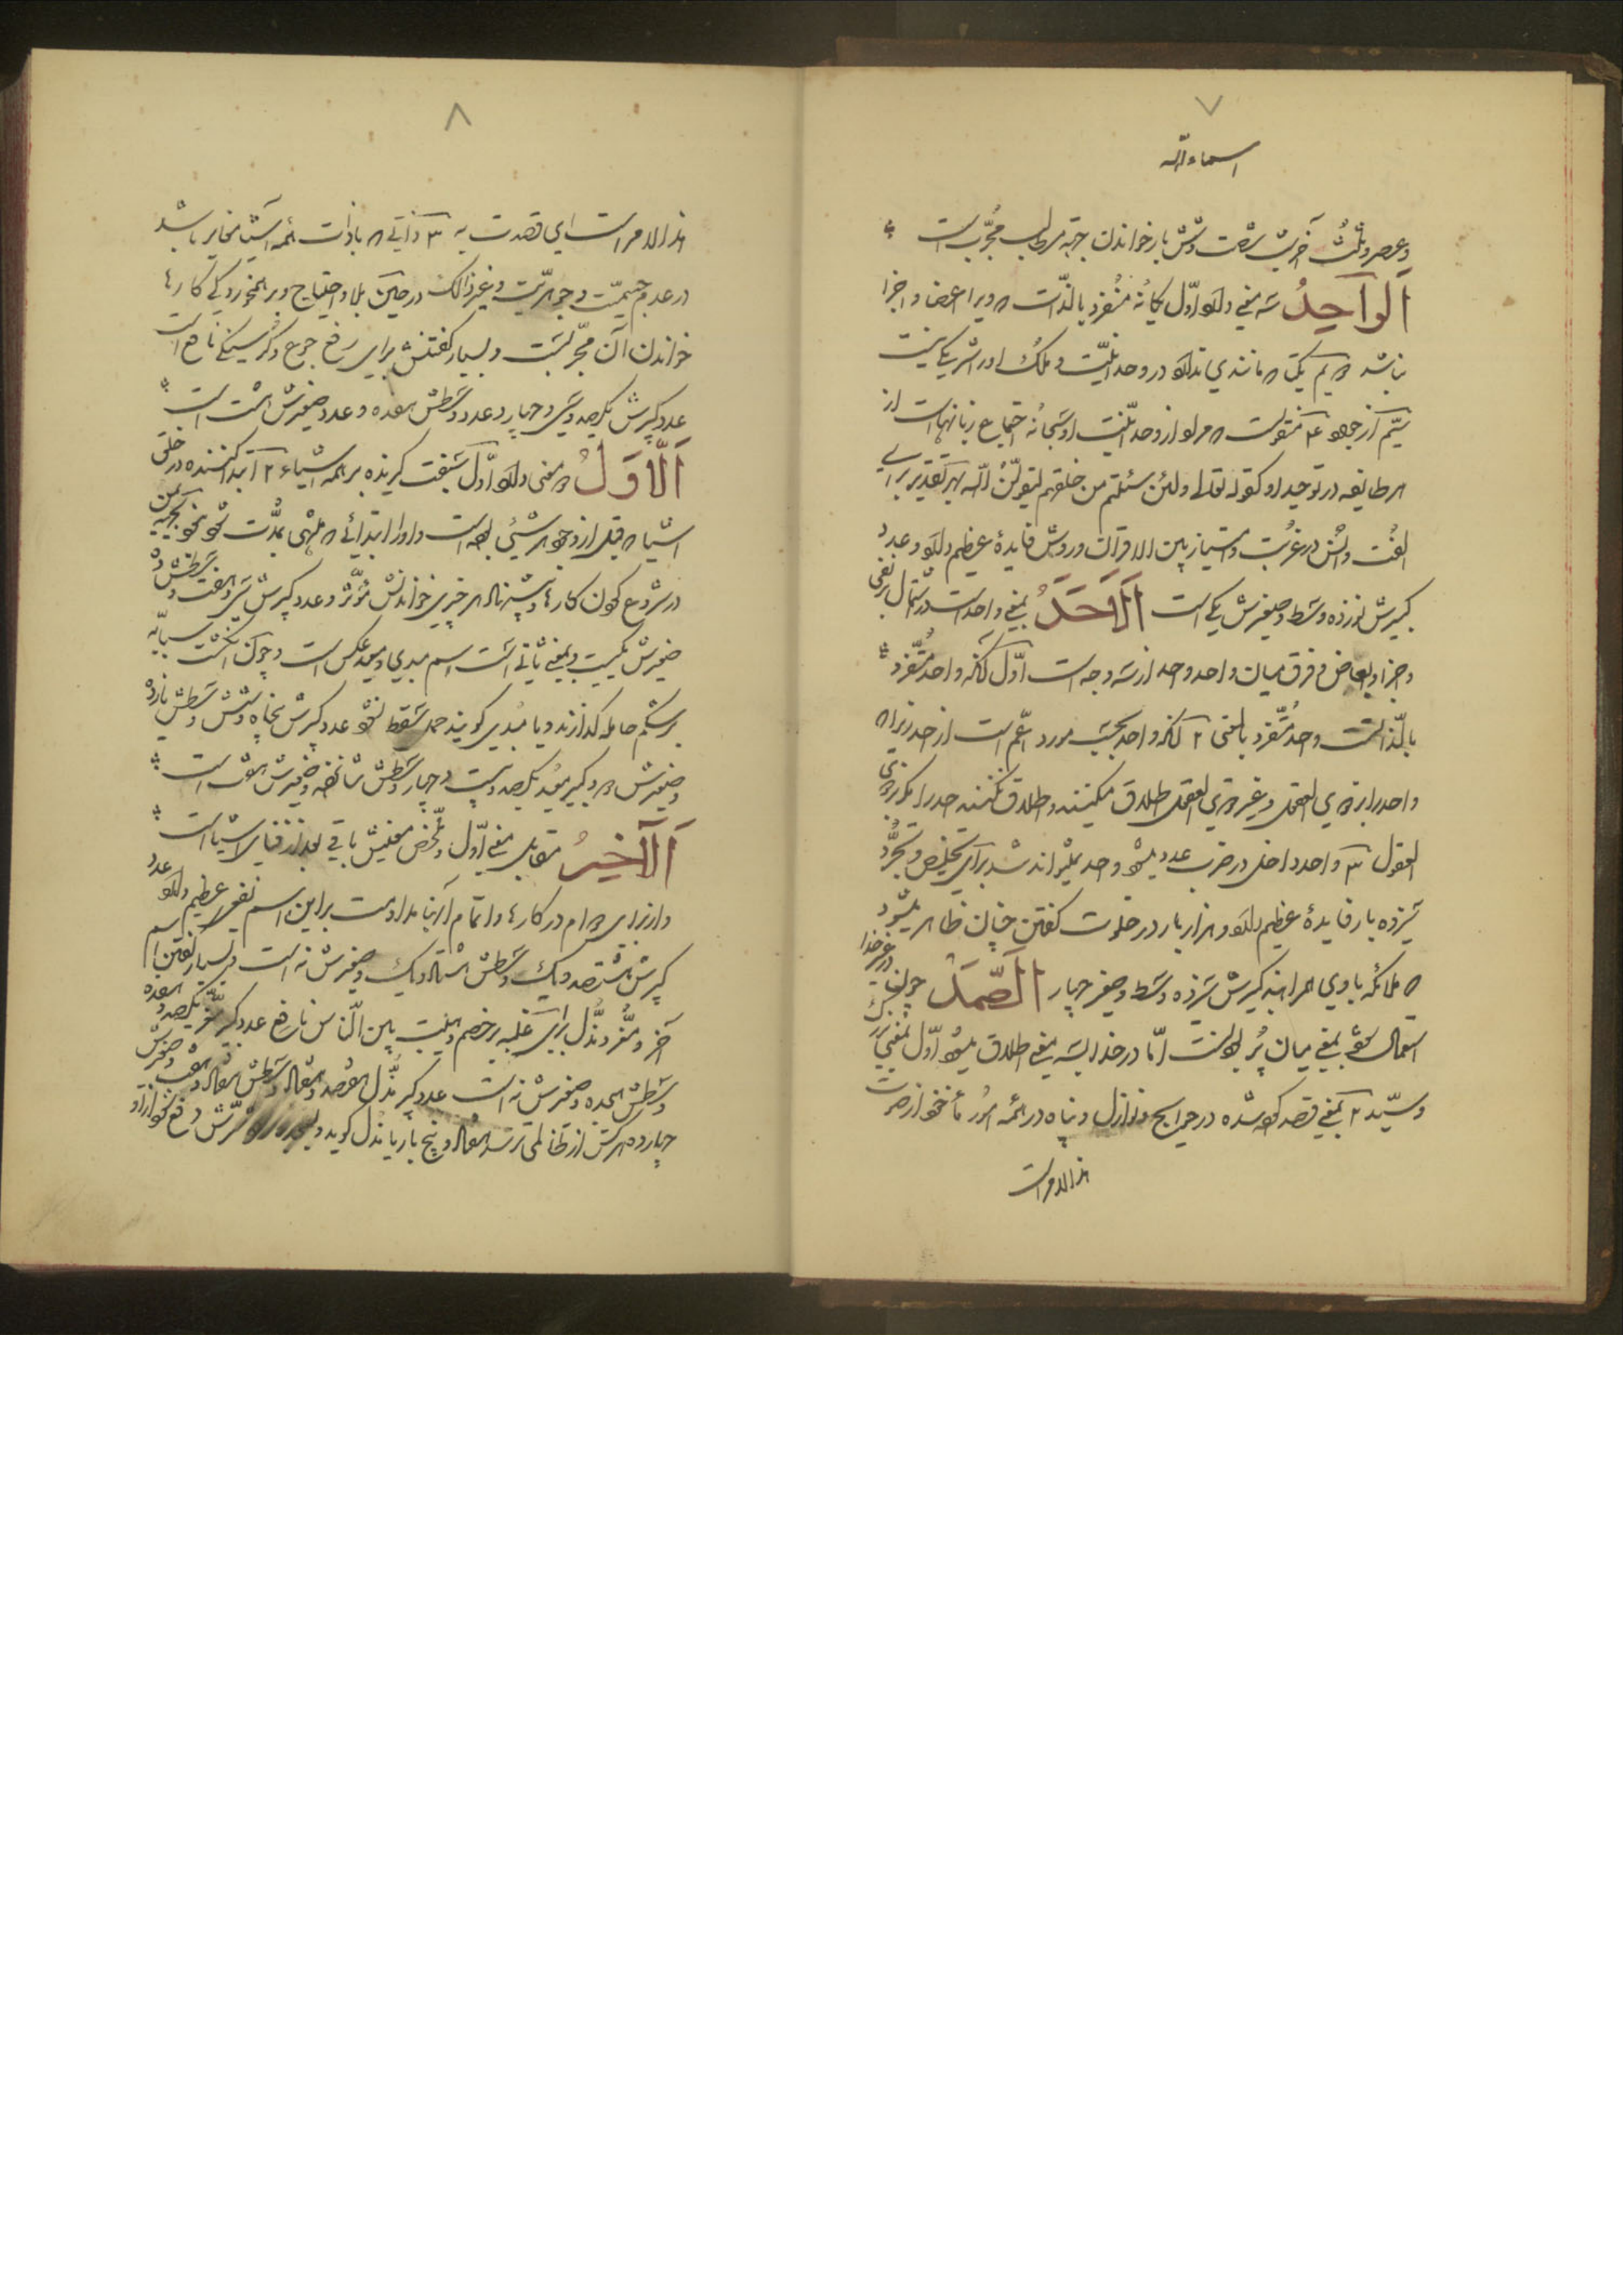 ۷
اسماء الله
و عصر و ثلث آخر شب شصت و شش بار خواندن جهة هر مطلب مجرّب است
اَلْواحِدُ سه معنی دارد اوّل یگانه منفرد بالذّات که ویرا اعضا و اجزا
نباشد دویم یکتا که مانندی ندارد در وحدانیّت و ملک او را شریک نیست
سیّم از جهة منقولست که مراد از وحدانیّت او سبحانه اجتماع زبانهاست از
هر طایفه در توحید او کقوله تعالی ولئن سئلتهم من خلقهم لیقولنّ الله بهر تقدیر برای
الفت و انس در غربت و امتیاز بین الاقران وردش فایدهٔ عظیم دارد و عدد
کبیرش نوزده وسط و صغیرش یک است اَلْاَحَدُ بمعنی واحدست در اشتمال بر نفی
و اجزا و ابعاض و فرق میان واحد و احد از سه وجه است اوّل آنکه واحد متفرّد
بالذّاتست و احد متفرّد بالمعنی ۲ آنکه واحد بحسب مورد اعّم است از احد زیرا که
واحد را بر ذوی العقول و غیر ذوی العقول اطلاق میکنند و اطلاق نکنند احد را مگر بر ذوی
العقول ۳ واحد داخل در ضرب عدد میشود و احد نمیتواند شد برای تخلیص و تجرّد
سیزده بار فایدهٔ عظیم دارد و هزار بار در خلوت گفتن چنان ظاهر میشود
که ملائکه با وی همراهند کبیرش سیزده وسط و صغیر چهار اَلصَّمَدُ چون در غیر خدا
استعمال شود بمعنی میان پُر امّا در خدا بسه معنی اطلاق میشود اوّل بمعنی بزرگ
و سیّد ۲ بمعنی قصد کرده شده در حوایج و نوازل و پناه در همه امور مأخوذ از صمدت
هذا الامر است
۸
هذا الامر است ای قصدت به ۳ ذاتی که با ذات همه اشیا مغایر باشد
در عدم جسمیّت و جوهریّت و غیر ذالک در حین بلا و احتیاج و بر همخوردگی کارها
خواندن آن مجرّبست و بسیار گفتنش برای رفع جوع و گرسنگی نافع است
عدد کبرش یکصد و سی و چهار و عدد وسطش هفده و عدد صغیرش هشت است
اَلْاَوَّلُ دو معنی دارد اوّل سبقت گیرنده بر همه اشیاء ۲ ابتدا کننده در خلق
اشیا که قبل از وجود هر شیئی بوده است و او را ابتدائی که منتهی بمدّت شود نبود بجهة یمن
در شروع کردن کارها و پیشنهاد هر خیری خواندنش مؤثّر و عدد کبیرش سی و هفت و وسطش ده
صغیرش یکیست و بمعنی ثانی است اسم مبدی و معید عکس است و چون انگشت سبّابه
بر شکم حامله گذارند و یا مبدی گویند حمل سقط نشود عدد کبیرش پنجاه و شش وسطش یازده
و صغیرش دو کبیر معید یکصد و بیست و چهار وسطش شانزده و صغیرش هفت است
اَلْآخِرُ مقابل معنی اوّل و ملخّص معنیش باقی بعد از فنای اشیا است
و از برای دوام در کارها و اتمام آنها مداومت بر این اسم نفعی عظیم دارد عدد
کبیرش هشتصد و یک وسطش هشتاد و یک و صغیرش نه است و بسیار گفتن اسم
آخر و معزّ و مذلّ برای غلبه بر خصم و هیبت بین النّاس نافع عدد کبیر معزّ یکصد و هفده
وسطش هجده و صغیرش نه است عدد کبیر مذلّ هفتصد و هفتاد وسطش هفتاد و هفت و صغیرش
چهارده هر کس از ظالمی ترسد هفتاد و پنج بار یا مذلّ گوید و شرّش دفع شود